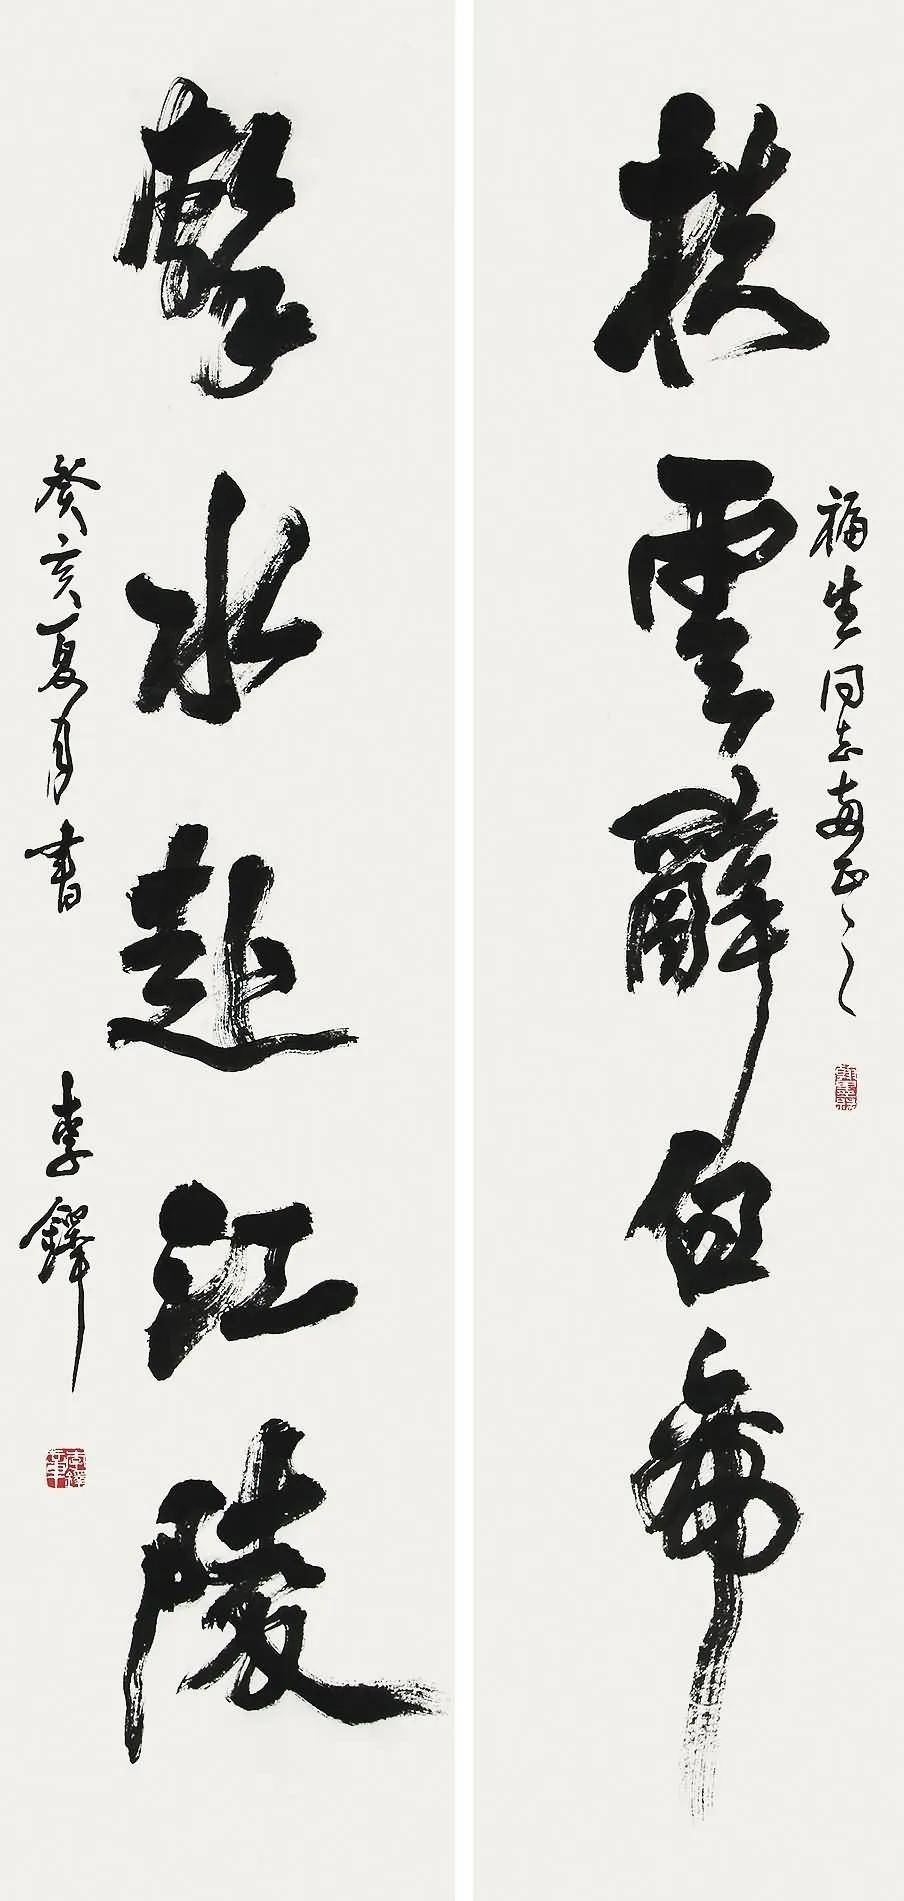 挟雲辭白帝
福生同志正之
擊水赴江陵
癸亥夏月書 李鐸